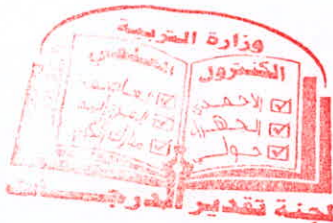 وزارة التربية
الكنترول
العلمي
الأحمدي
الجهراء
حولي
العاصمة
الفروانية
مبارك الكبير
لجنة تقدير الدرجات